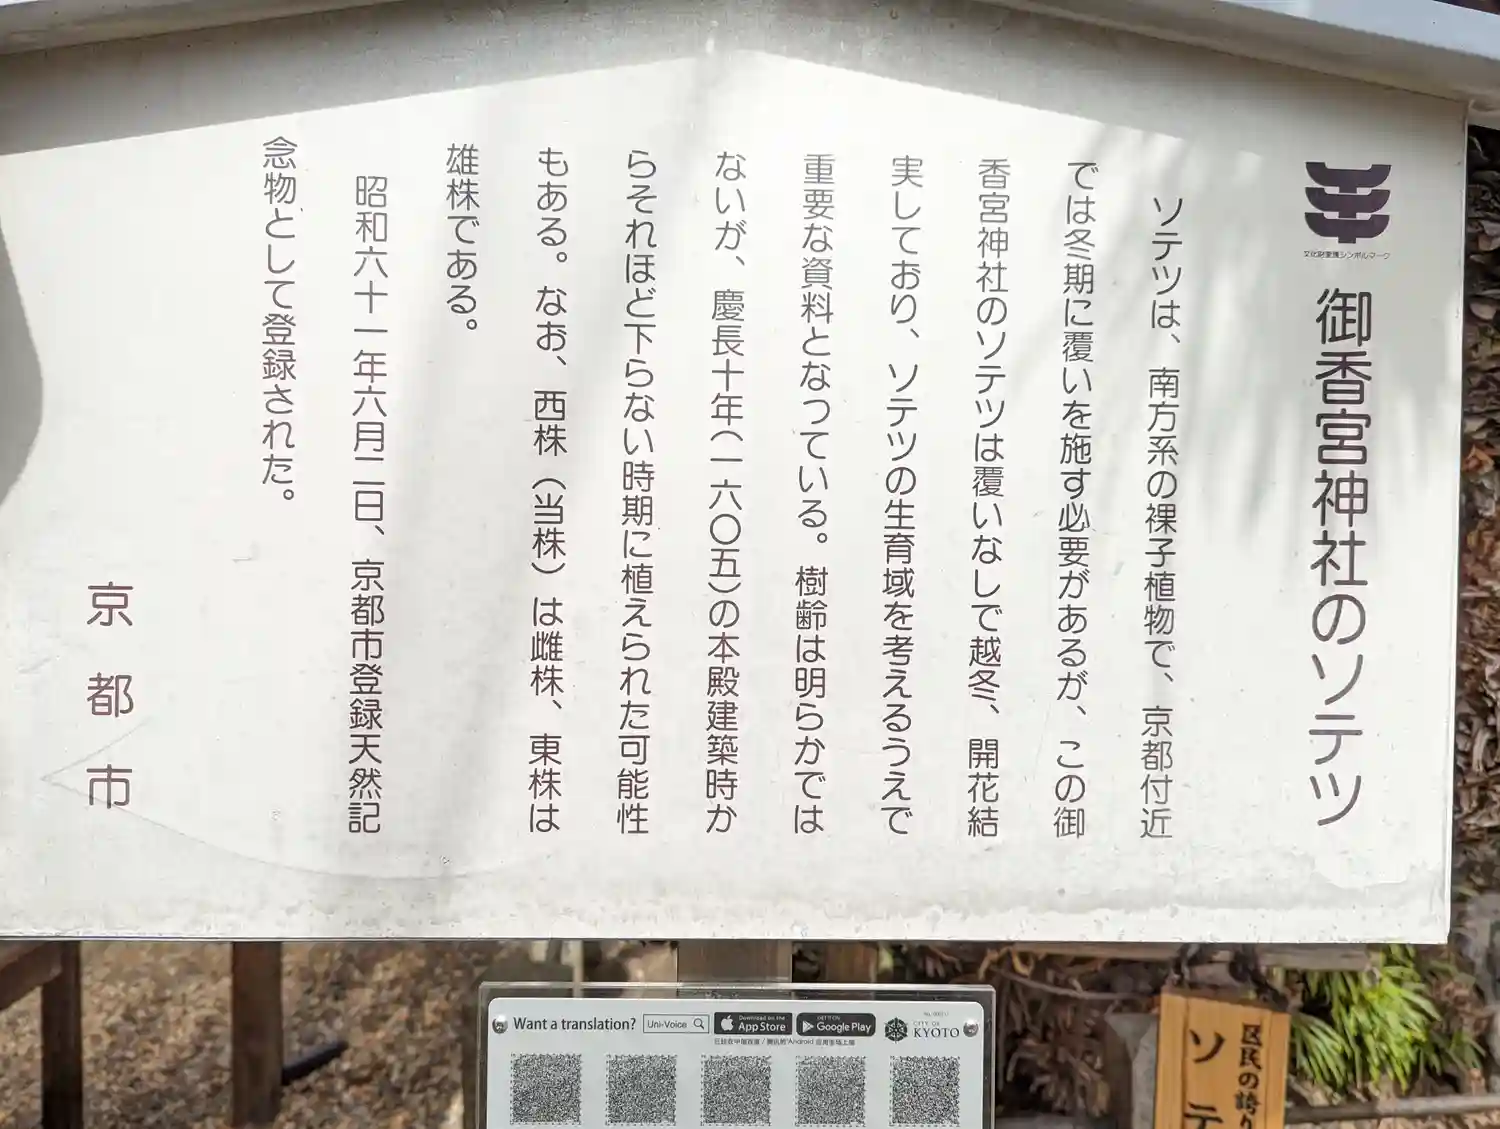 文化財愛護シンボルマーク
御香宮神社のソテツ
ソテツは、南方系の裸子植物で、京都付近
では冬期に覆いを施す必要があるが、この御
香宮神社のソテツは覆いなしで越冬、開花結
実しており、ソテツの生育域を考えるうえで
重要な資料となっている。樹齢は明らかでは
ないが、慶長十年(一六〇五)の本殿建築時か
らそれほど下らない時期に植えられた可能性
もある。なお、西株（当株）は雌株、東株は
雄株である。
昭和六十一年六月二日、京都市登録天然記
念物として登録された。
京都市
Want a translation?
Uni-Voice
Download on the
App Store
GET IT ON
Google Play
CITY OF
KYOTO
区民の誇り
ソテ